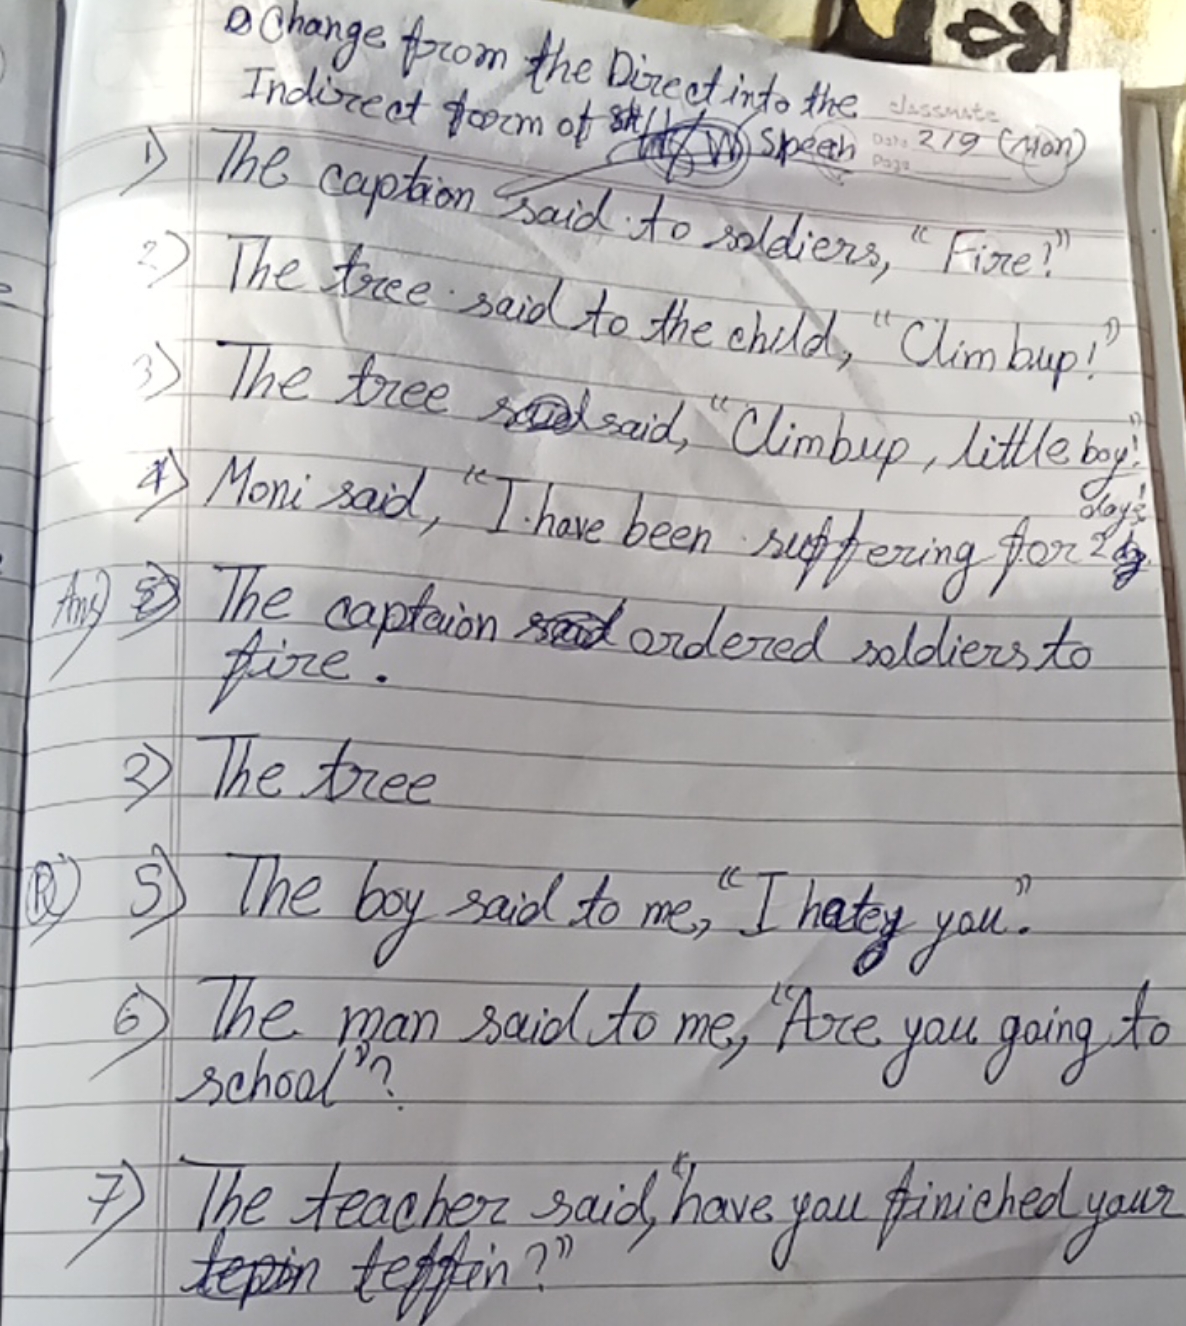 Change from the Direct into the
Indirect form of Speech
classmate
Date 2/9 (Mon)
Page
1) The captaion said to soldiers, "Fire!"
2) The tree said to the child, "Climbup!"
3) The tree said, "Climbup, little boy!"
4) Moni said, "I have been suffering for 2 days!
Ans) The captaion ordered soldiers to
fire.
2) The tree
5) The boy said to me, "I hate you".
6) The man said to me, "Are you going to
school"?
7) The teacher said, "have you finiched your
teffin?"